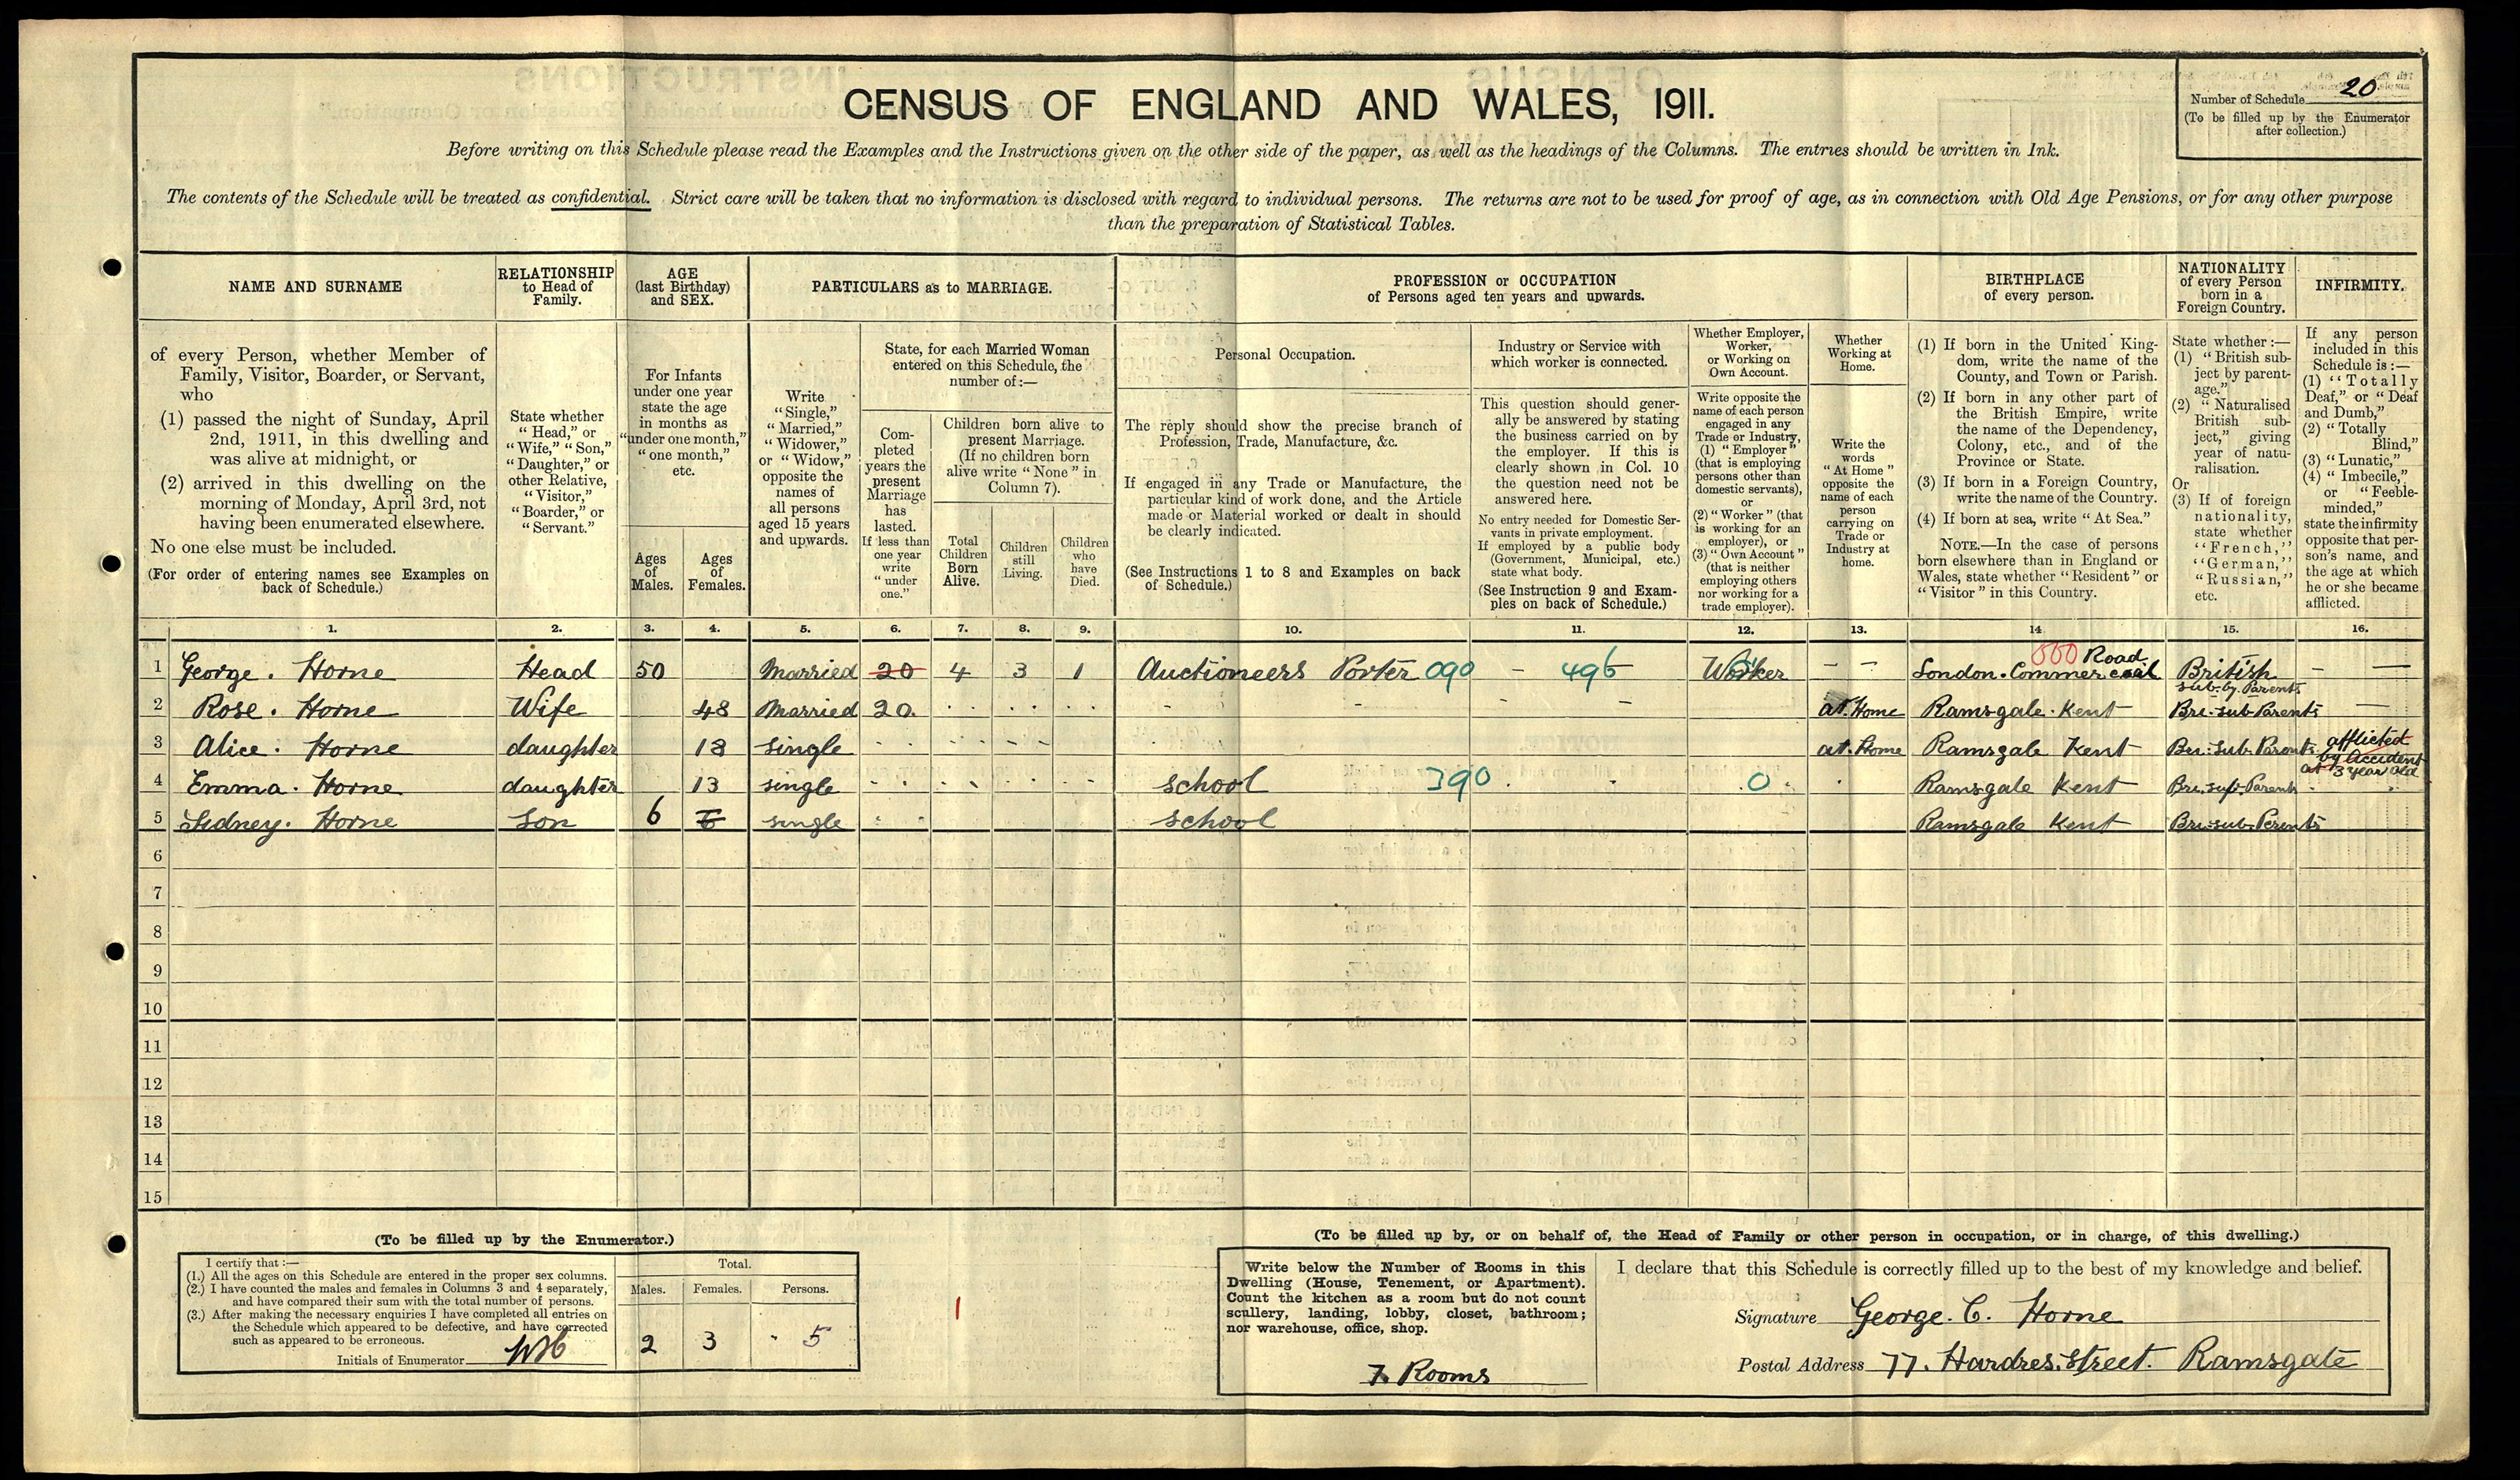 CENSUS OF ENGLAND AND WALES, 1911.
Number of Schedule 20
(To be filled up by the Enumerator
after collection.)
Before writing on this Schedule please read the Examples and the Instructions given on the other side of the paper, as well as the headings of the Columns. The entries should be written in Ink.
The contents of the Schedule will be treated as confidential. Strict care will be taken that no information is disclosed with regard to individual persons. The returns are not to be used for proof of age, as in connection with Old Age Pensions, or for any other purpose
than the preparation of Statistical Tables.
NAME AND SURNAME
of every Person, whether Member of
Family, Visitor, Boarder, or Servant,
who
(1) passed the night of Sunday, April
2nd, 1911, in this dwelling and
was alive at midnight, or
(2) arrived in this dwelling on the
morning of Monday, April 3rd, not
having been enumerated elsewhere.
No one else must be included.
(For order of entering names see Examples on
back of Schedule.)
RELATIONSHIP
to Head of
Family.
State whether
"Head," or
"Wife," "Son,"
"Daughter," or
other Relative,
"Visitor,"
"Boarder," or
"Servant."
AGE
(last Birthday)
and SEX.
For Infants
under one year
state the age
in months as
"under one month,"
"one month,"
etc.
Ages
of
Males.
Ages
of
Females.
PARTICULARS as to MARRIAGE.
Write
"Single,"
"Married,"
"Widower,"
or "Widow,"
opposite the
names of
all persons
aged 15 years
and upwards.
State, for each Married Woman
entered on this Schedule, the
number of:—
Com-
pleted
years the
present
Marriage
has
lasted.
If less than
one year
write
"under
one."
Children born alive to
present Marriage.
(If no children born
alive write "None" in
Column 7).
Total
Children
Born
Alive.
Children
still
Living.
Children
who
have
Died.
PROFESSION or OCCUPATION
of Persons aged ten years and upwards.
Personal Occupation.
The reply should show the precise branch of
Profession, Trade, Manufacture, &c.
If engaged in any Trade or Manufacture, the
particular kind of work done, and the Article
made or Material worked or dealt in should
be clearly indicated.
(See Instructions 1 to 8 and Examples on back
of Schedule.)
Industry or Service with
which worker is connected.
This question should gener-
ally be answered by stating
the business carried on by
the employer. If this is
clearly shown in Col. 10
the question need not be
answered here.
No entry needed for Domestic Ser-
vants in private employment.
If employed by a public body
(Government, Municipal, etc.)
state what body.
(See Instruction 9 and Exam-
ples on back of Schedule.)
Whether Employer,
Worker,
or Working on
Own Account.
Write opposite the
name of each person
engaged in any
Trade or Industry,
(1) "Employer"
(that is employing
persons other than
domestic servants),
or
(2) "Worker" (that
is working for an
employer), or
(3) "Own Account"
(that is neither
employing others
nor working for a
trade employer).
Whether
Working at
Home.
Write the
words
"At Home"
opposite the
name of each
person
carrying on
Trade or
Industry at
home.
BIRTHPLACE
of every person.
(1) If born in the United King-
dom, write the name of the
County, and Town or Parish.
(2) If born in any other part of
the British Empire, write
the name of the Dependency,
Colony, etc., and of the
Province or State.
(3) If born in a Foreign Country,
write the name of the Country.
(4) If born at sea, write "At Sea."
NOTE.—In the case of persons
born elsewhere than in England or
Wales, state whether "Resident" or
"Visitor" in this Country.
NATIONALITY
of every Person
born in a
Foreign Country.
State whether:—
(1) "British sub-
ject by parent-
age."
(2) "Naturalised
British sub-
ject," giving
year of natu-
ralisation.
Or
(3) If of foreign
nationality,
state whether
"French,"
"German,"
"Russian,"
etc.
INFIRMITY.
If any person
included in this
Schedule is:—
(1) "Totally
Deaf," or "Deaf
and Dumb,"
(2) "Totally
Blind,"
(3) "Lunatic,"
(4) "Imbecile,"
or "Feeble-
minded,"
state the infirmity
opposite that per-
son's name, and
the age at which
he or she became
afflicted.
1. 2. 3. 4. 5. 6. 7. 8. 9. 10. 11. 12. 13. 14 15. 16.
1 George. Horne Head 50 Married 20 4 3 1 Auctioneers Porter 090 — 496 Worker — — London. Commercial Road British sub. by. Parents — —
2 Rose. Horne Wife 48 Married 20. at. Home Ramsgate. Kent Bri. sub Parents —
3 Alice. Horne daughter 18 single at. Home Ramsgate Kent Bri. Sub. Parents afflicted by Accident at 3 year old
4 Emma. Horne daughter 13 single school 390 0 Ramsgate Kent Bri. sub. Parents
5 Sidney. Horne Son 6 6 single school Ramsgate Kent Bri. sub. Parents
6
7
8
9
10
11
12
13
14
15
(To be filled up by the Enumerator.)
I certify that:—
(1.) All the ages on this Schedule are entered in the proper sex columns.
(2.) I have counted the males and females in Columns 3 and 4 separately,
and have compared their sum with the total number of persons.
(3.) After making the necessary enquiries I have completed all entries on
the Schedule which appeared to be defective, and have corrected
such as appeared to be erroneous.
Initials of Enumerator
Total.
Males. Females. Persons.
2 3 5
1
(To be filled up by, or on behalf of, the Head of Family or other person in occupation, or in charge, of this dwelling.)
Write below the Number of Rooms in this
Dwelling (House, Tenement, or Apartment).
Count the kitchen as a room but do not count
scullery, landing, lobby, closet, bathroom;
nor warehouse, office, shop.
7. Rooms
I declare that this Schedule is correctly filled up to the best of my knowledge and belief.
Signature George. C. Horne
Postal Address 77. Hardres. Street. Ramsgate